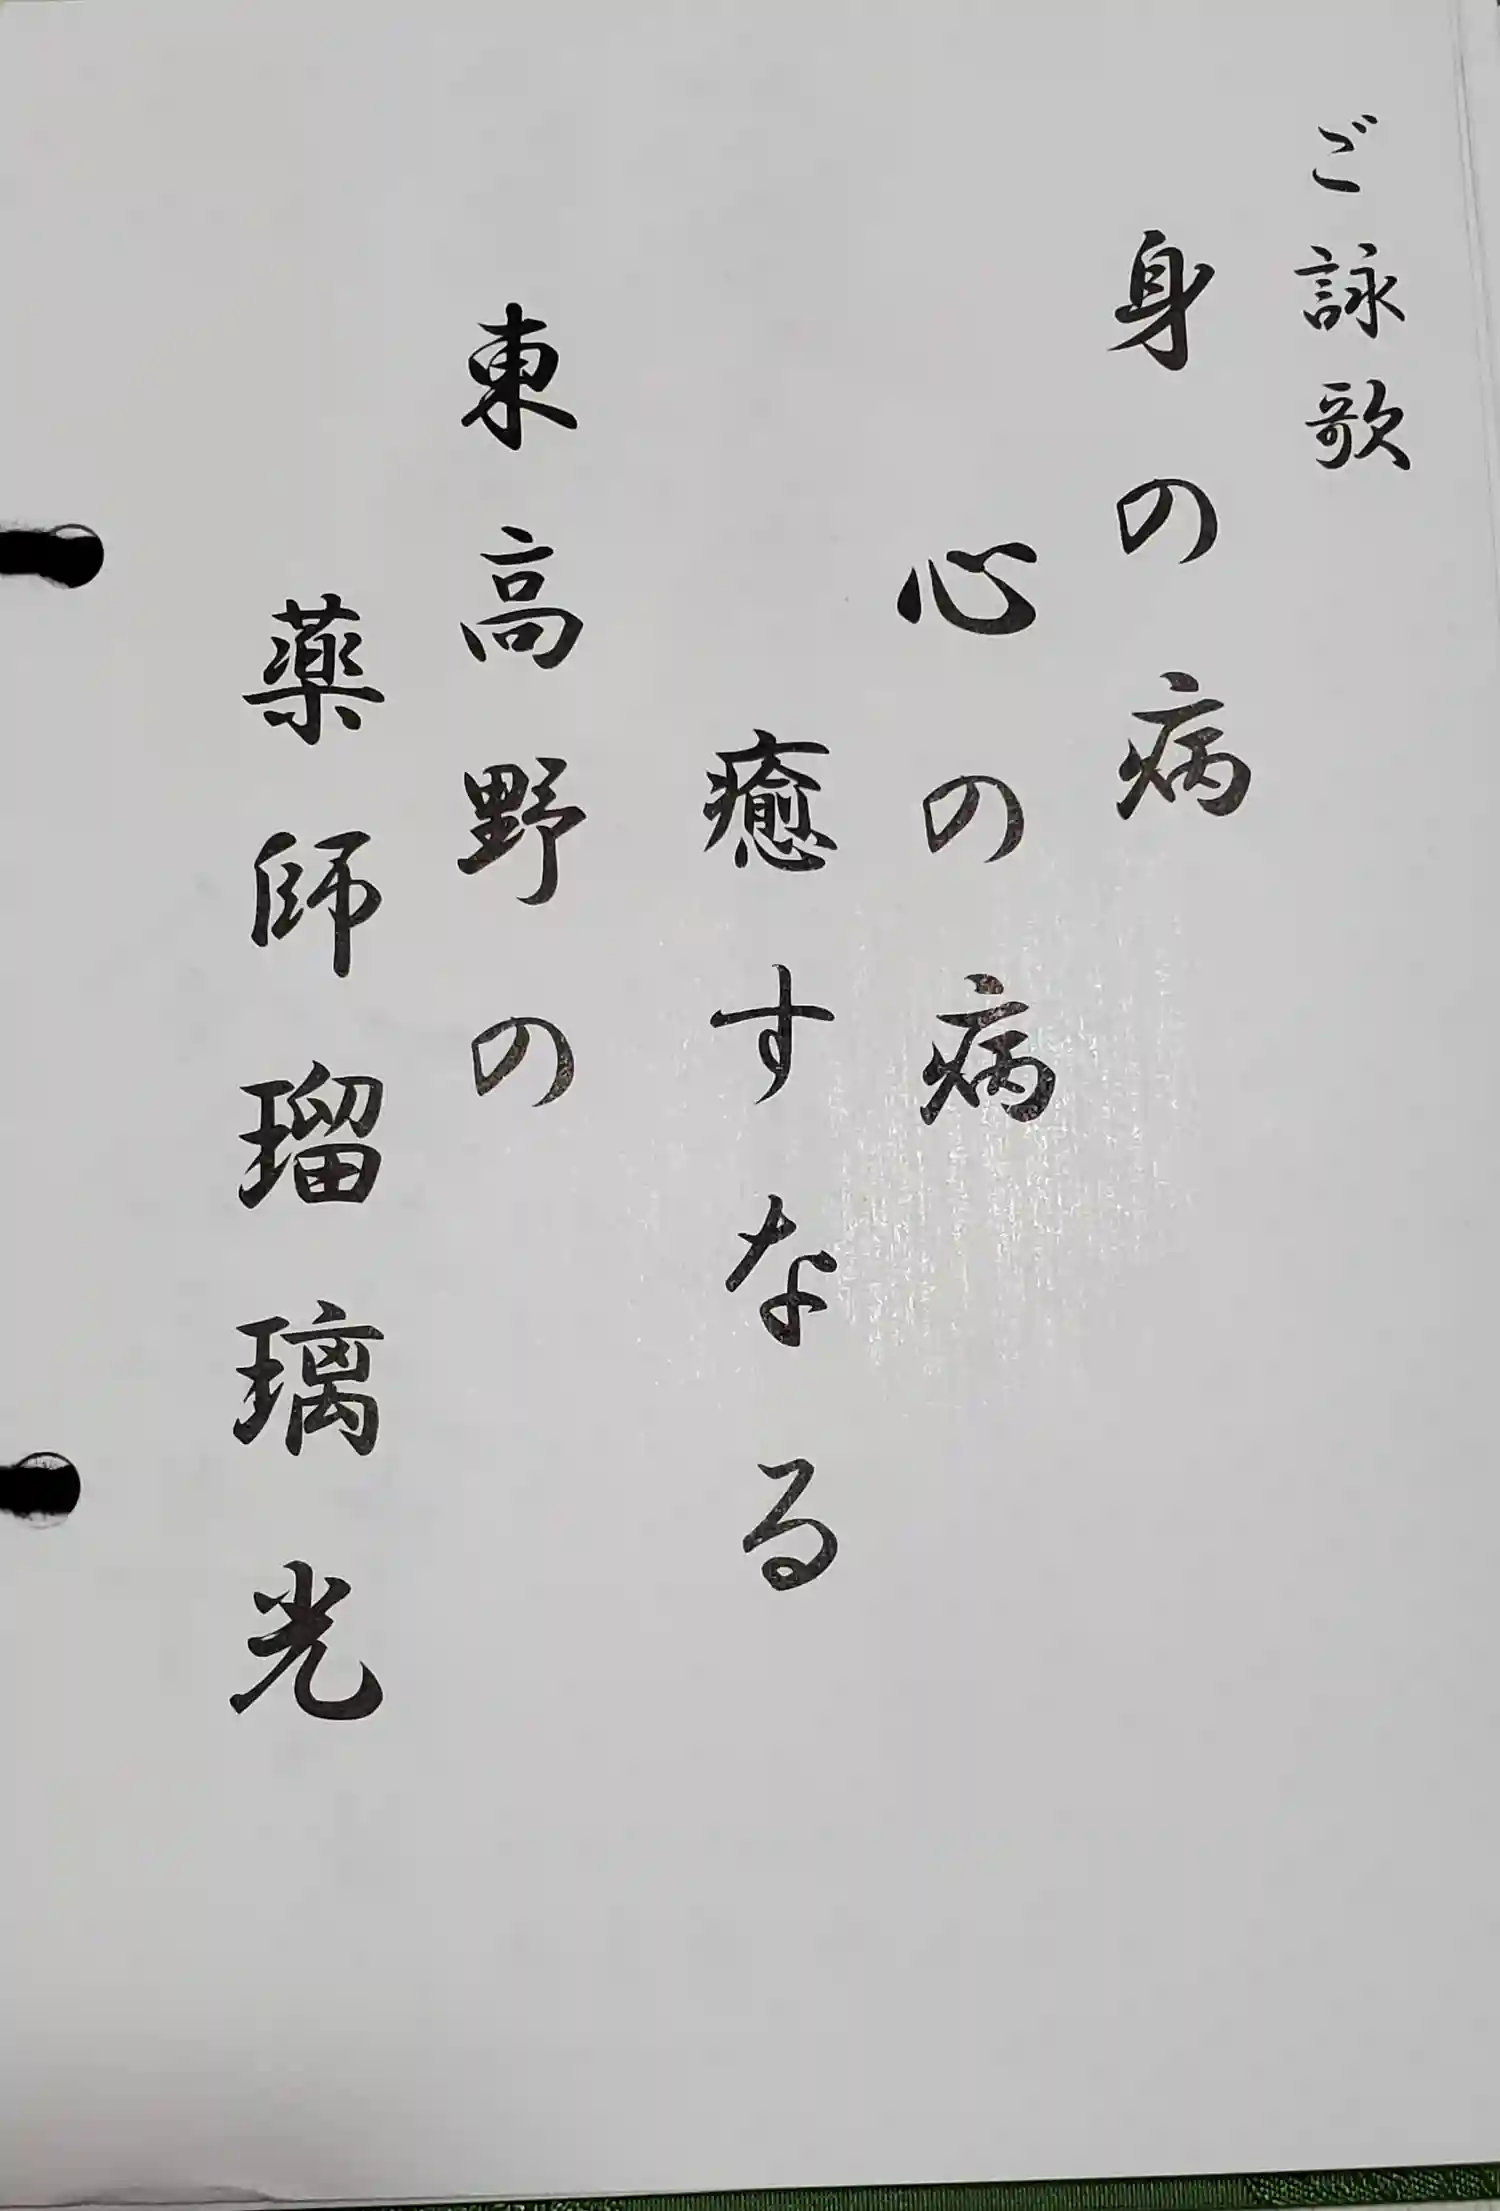 ご詠歌
身の病
心の病
癒すなる
東高野の
薬師瑠璃光